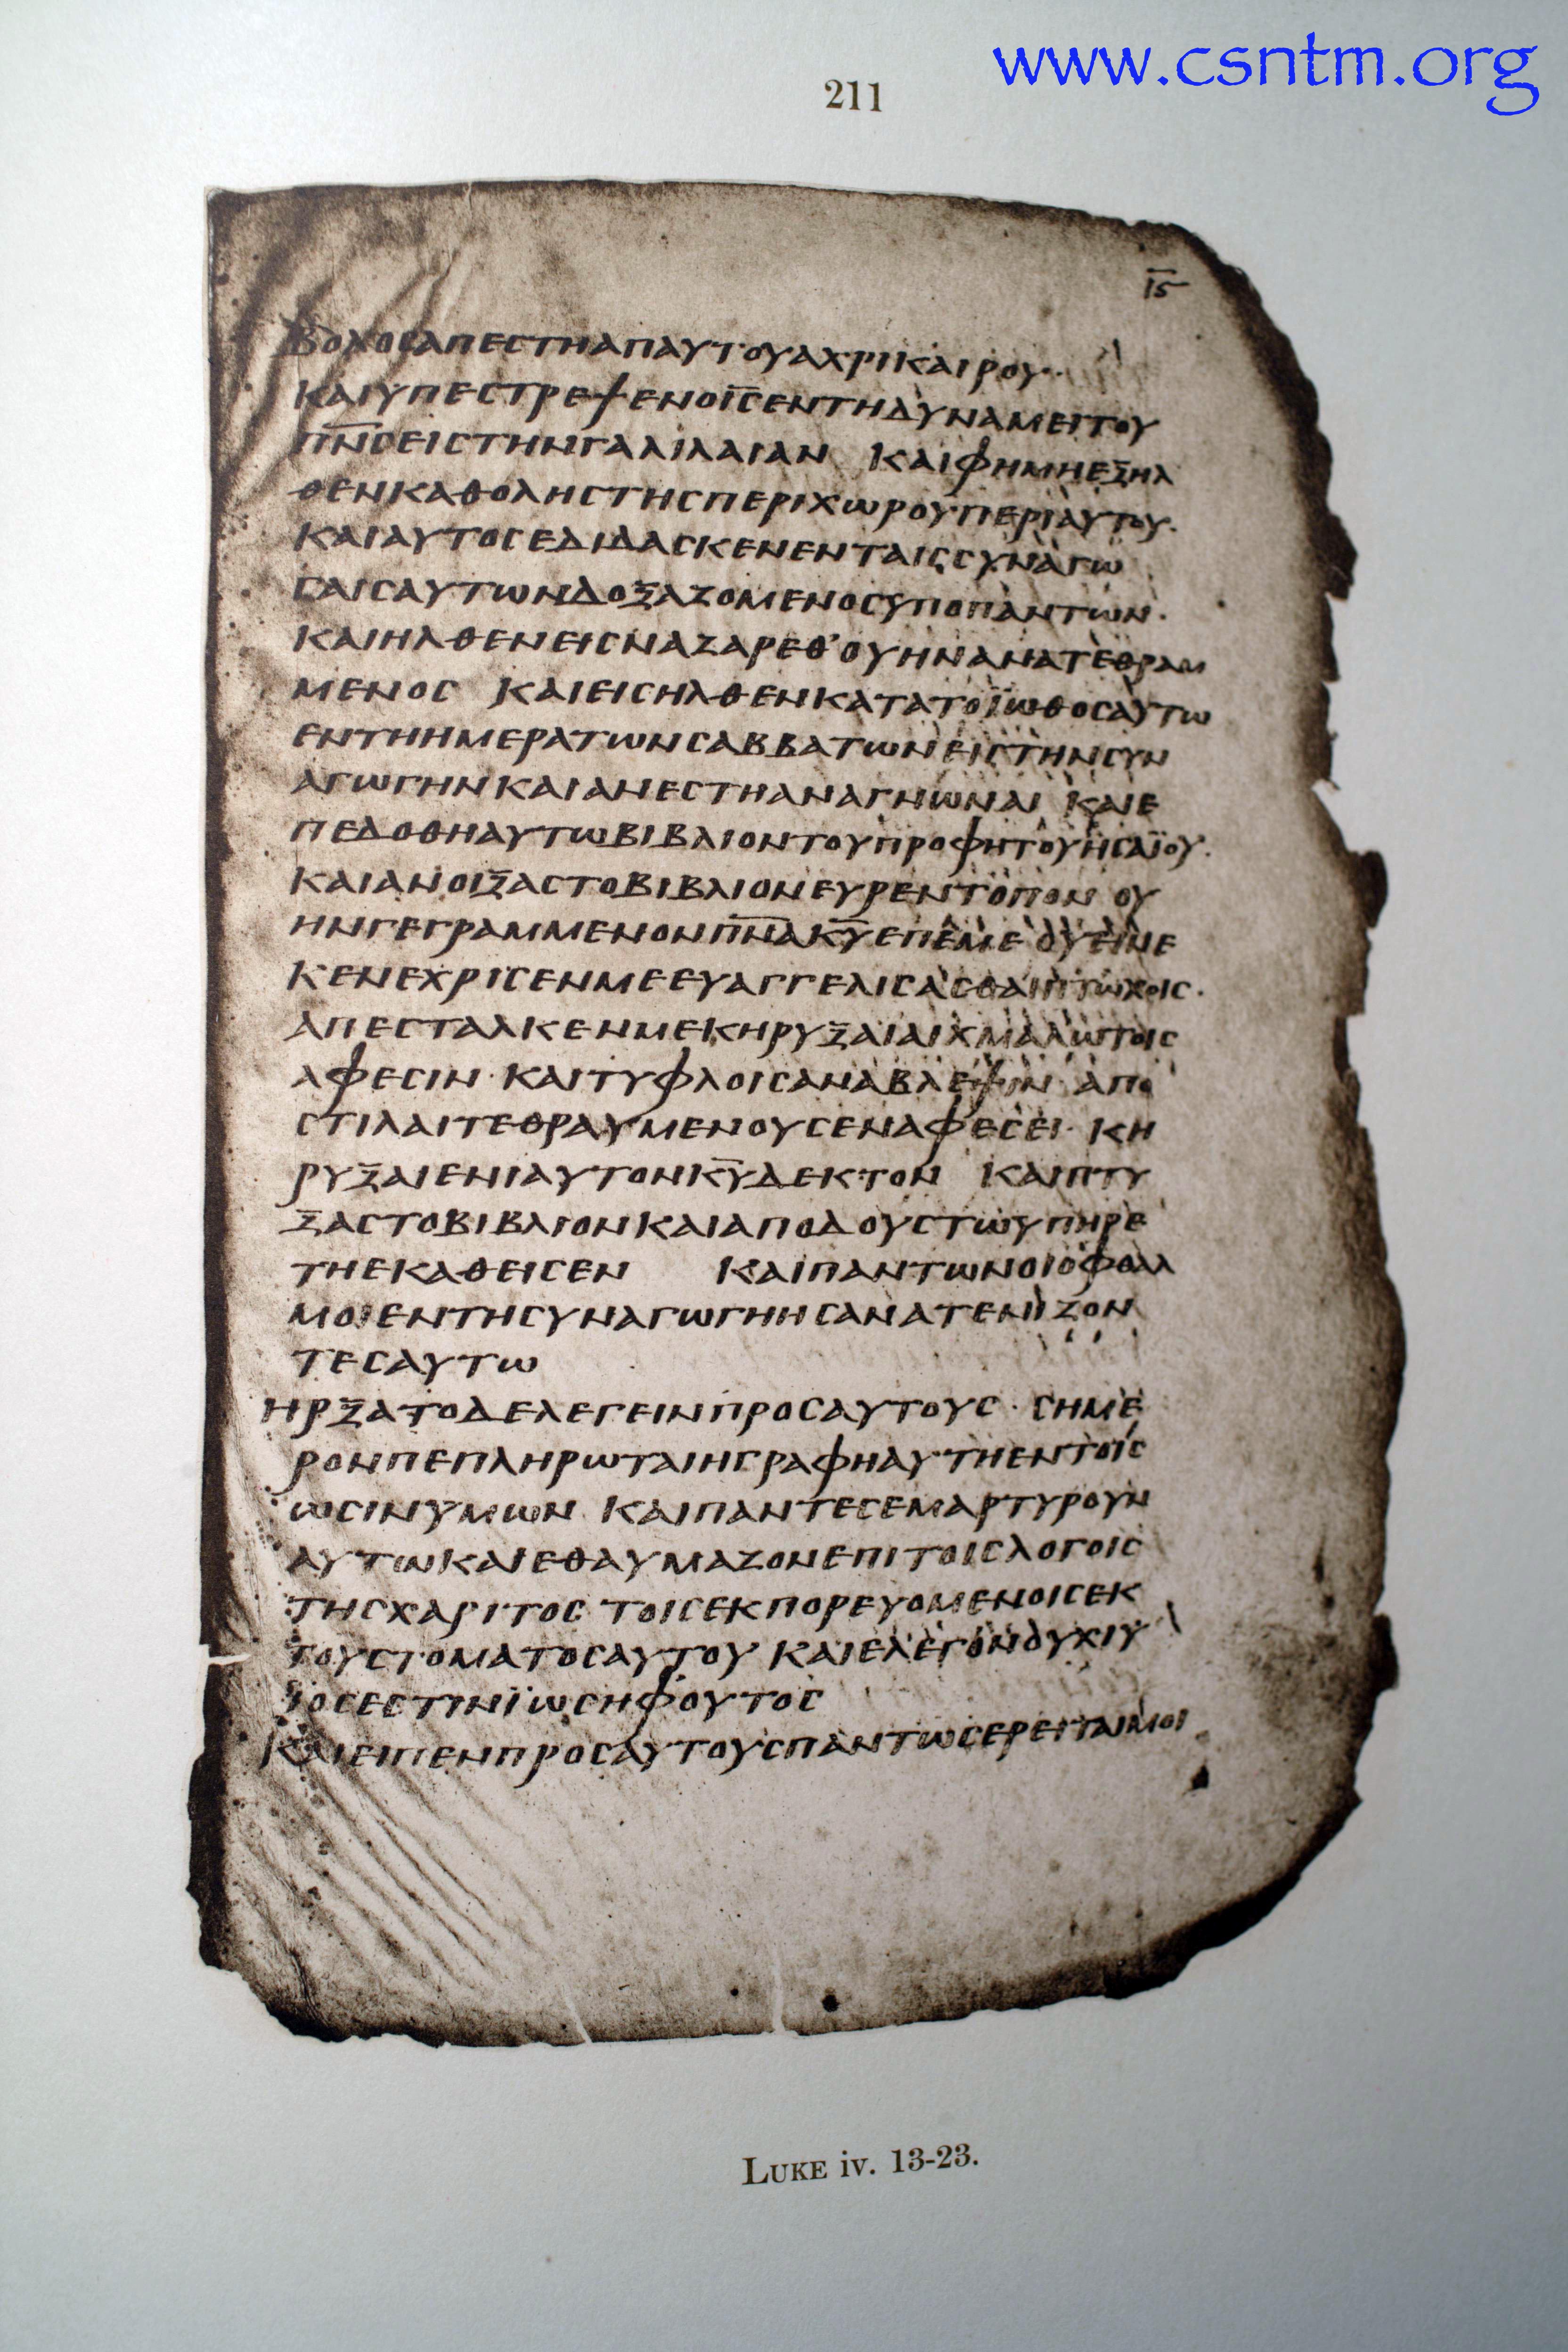 www.csntm.org
211
ΙϚ
ΒΟΛΟСΑΠΕСΤΗΑΠΑΥΤΟΥΑΧΡΙΚΑΙΡΟΥ·
ΚΑΙΥΠΕСΤΡΕΨΕΝΟΙ̅С̅ΕΝΤΗΔΥΝΑΜΕΙΤΟΥ
Π̅Ν̅СΕΙСΤΗΝΓΑΛΙΛΑΙΑΝ ΚΑΙΦΗΜΗΕΞΗΛ
ΘΕΝΚΑΘΟΛΗСΤΗСΠΕΡΙΧΩΡΟΥΠΕΡΙΑΥΤΟΥ·
ΚΑΙΑΥΤΟСΕΔΙΔΑСΚΕΝΕΝΤΑΙССΥΝΑΓΩ
ΓΑΙСΑΥΤΩΝΔΟΞΑΖΟΜΕΝΟСΥΠΟΠΑΝΤΩΝ·
ΚΑΙΗΛΘΕΝΕΙСΝΑΖΑΡΕΘ'ΟΥΗΝΑΝΑΤΕΘΡΑΜ
ΜΕΝΟС ΚΑΙΕΙСΗΛΘΕΝΚΑΤΑΤΟΪΩΘΟСΑΥΤΩ
ΕΝΤΗΗΜΕΡΑΤΩΝСΑΒΒΑΤΩΝΕΙСΤΗΝСΥΝ
ΑΓΩΓΗΝΚΑΙΑΝΕСΤΗΑΝΑΓΝΩΝΑΙ ΚΑΙΕ
ΠΕΔΟΘΗΑΥΤΩΒΙΒΛΙΟΝΤΟΥΠΡΟΦΗΤΟΥΗСΑΪΟΥ·
ΚΑΙΑΝΟΙΞΑСΤΟΒΙΒΛΙΟΝΕΥΡΕΝΤΟΠΟΝ ΟΥ
ΗΝΓΕΓΡΑΜΜΕΝΟΝΠ̅Ν̅Α̅Κ̅Υ̅ΕΠΕΜΕ ΟΥΕΙΝΕ
ΚΕΝΕΧΡΙСΕΝΜΕΕΥΑΓΓΕΛΙСΑСΘΑΙΠΤΩΧΟΙС·
ΑΠΕСΤΑΛΚΕΝΜΕΚΗΡΥΞΑΙΑΙΧΜΑΛΩΤΟΙС
ΑΦΕСΙΝ· ΚΑΙΤΥΦΛΟΙСΑΝΑΒΛΕΨΙΝ ΑΠΟ
СΤΙΛΑΙΤΕΘΡΑΥΜΕΝΟΥСΕΝΑΦΕСΕΙ· ΚΗ
ΡΥΞΑΙΕΝΙΑΥΤΟΝΚ̅Υ̅ΔΕΚΤΟΝ ΚΑΙΠΤΥ
ΞΑСΤΟΒΙΒΛΙΟΝΚΑΙΑΠΟΔΟΥСΤΩΥΠΗΡΕ
ΤΗΕΚΑΘΕΙСΕΝ ΚΑΙΠΑΝΤΩΝΟΙΟΦΘΑΛ
ΜΟΙΕΝΤΗСΥΝΑΓΩΓΗΗСΑΝΑΤΕΝΙΖΟΝ
ΤΕСΑΥΤΩ
ΗΡΞΑΤΟΔΕΛΕΓΕΙΝΠΡΟСΑΥΤΟΥС· СΗΜΕ
ΡΟΝΠΕΠΛΗΡΩΤΑΙΗΓΡΑΦΗΑΥΤΗΕΝΤΟΙС
ΩСΙΝΥΜΩΝ ΚΑΙΠΑΝΤΕСΕΜΑΡΤΥΡΟΥΝ
ΑΥΤΩΚΑΙΕΘΑΥΜΑΖΟΝΕΠΙΤΟΙСΛΟΓΟΙС
ΤΗСΧΑΡΙΤΟС ΤΟΙСΕΚΠΟΡΕΥΟΜΕΝΟΙСΕΚ
ΤΟΥСΤΟΜΑΤΟСΑΥΤΟΥ ΚΑΙΕΛΕΓΟΝΟΥΧΙΥ
ΙΟСΕСΤΙΝΪΩСΗΦΟΥΤΟС
ΚΑΙΕΙΠΕΝΠΡΟСΑΥΤΟΥСΠΑΝΤΩСΕΡΕΙΤΑΙΜΟΙ
LUKE iv. 13-23.